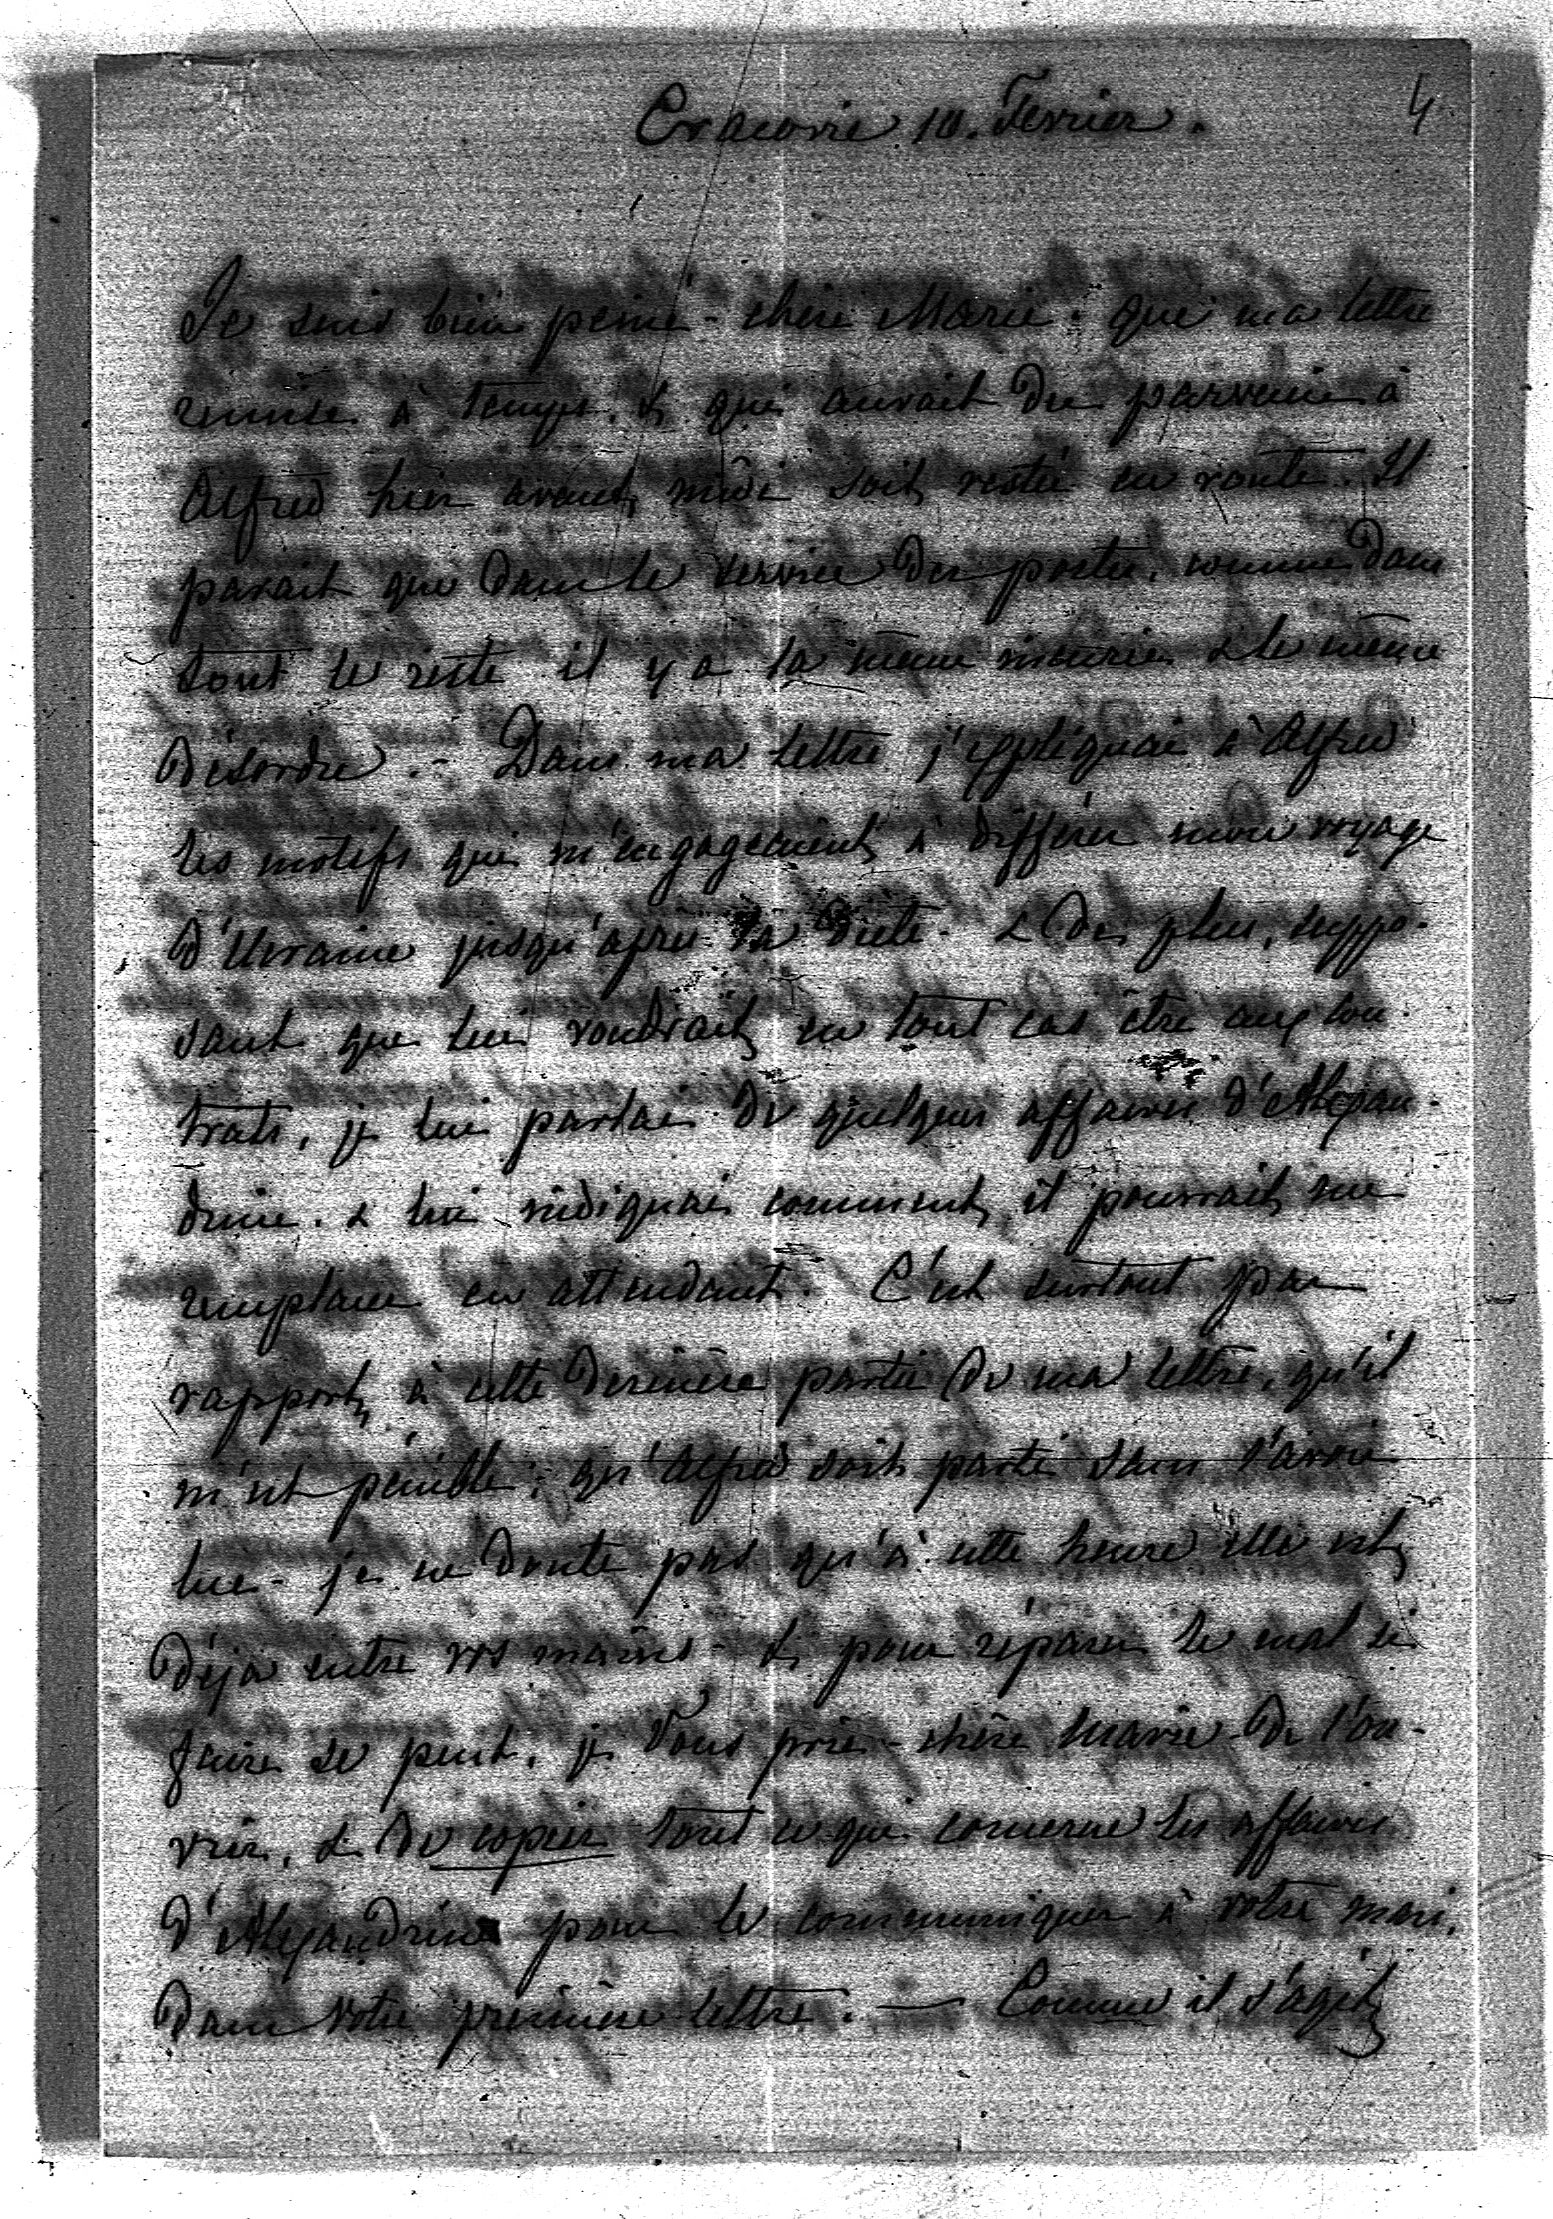 4
Cracovie 10. Fevrier.
Je suis bien peiné - chère Marie - que ma lettre
remise à temps, & qui aurait du parvenir à
Alfred hier avant midi soit restée en route. Il
parait que dans le service des postes, comme dans
tout le reste il y a la même incurie & le même
désordre. - Dans ma lettre j'expliquai à Alfred
les motifs qui m'engageaient à différer mon voyage
d'Ukraine jusqu'après la Diète - & de plus, suppo-
sant que lui voudrait en tout cas être aux con-
trats, je lui parlai de quelques affaires d'Alexan-
drine. & lui indiquai comment il pourrait me
remplacer en attendant. C'est surtout par
rapport à cette dernière partie de ma lettre, qu'il
m'est pénible, qu'Alfred soit parti sans l'avoir
lue - je ne doute pas qu'à cette heure elle est
déjà entre vos mains - & pour réparer le mal si
faire se peut, je Vous prie - chère Marie - de l'ou-
vrir, & de copier tout ce qui concerne les affaires
d'Alexandrine pour le communiquer à votre mari,
dans votre première lettre. — Comme il s'agit